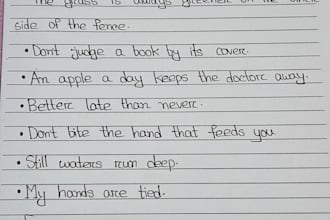 The grass is always greener on the other
side of the fence.
• Don't judge a book by its cover.
• An apple a day keeps the doctor away.
• Better late than never.
• Don't bite the hand that feeds you
• Still waters run deep.
• My hands are tied.